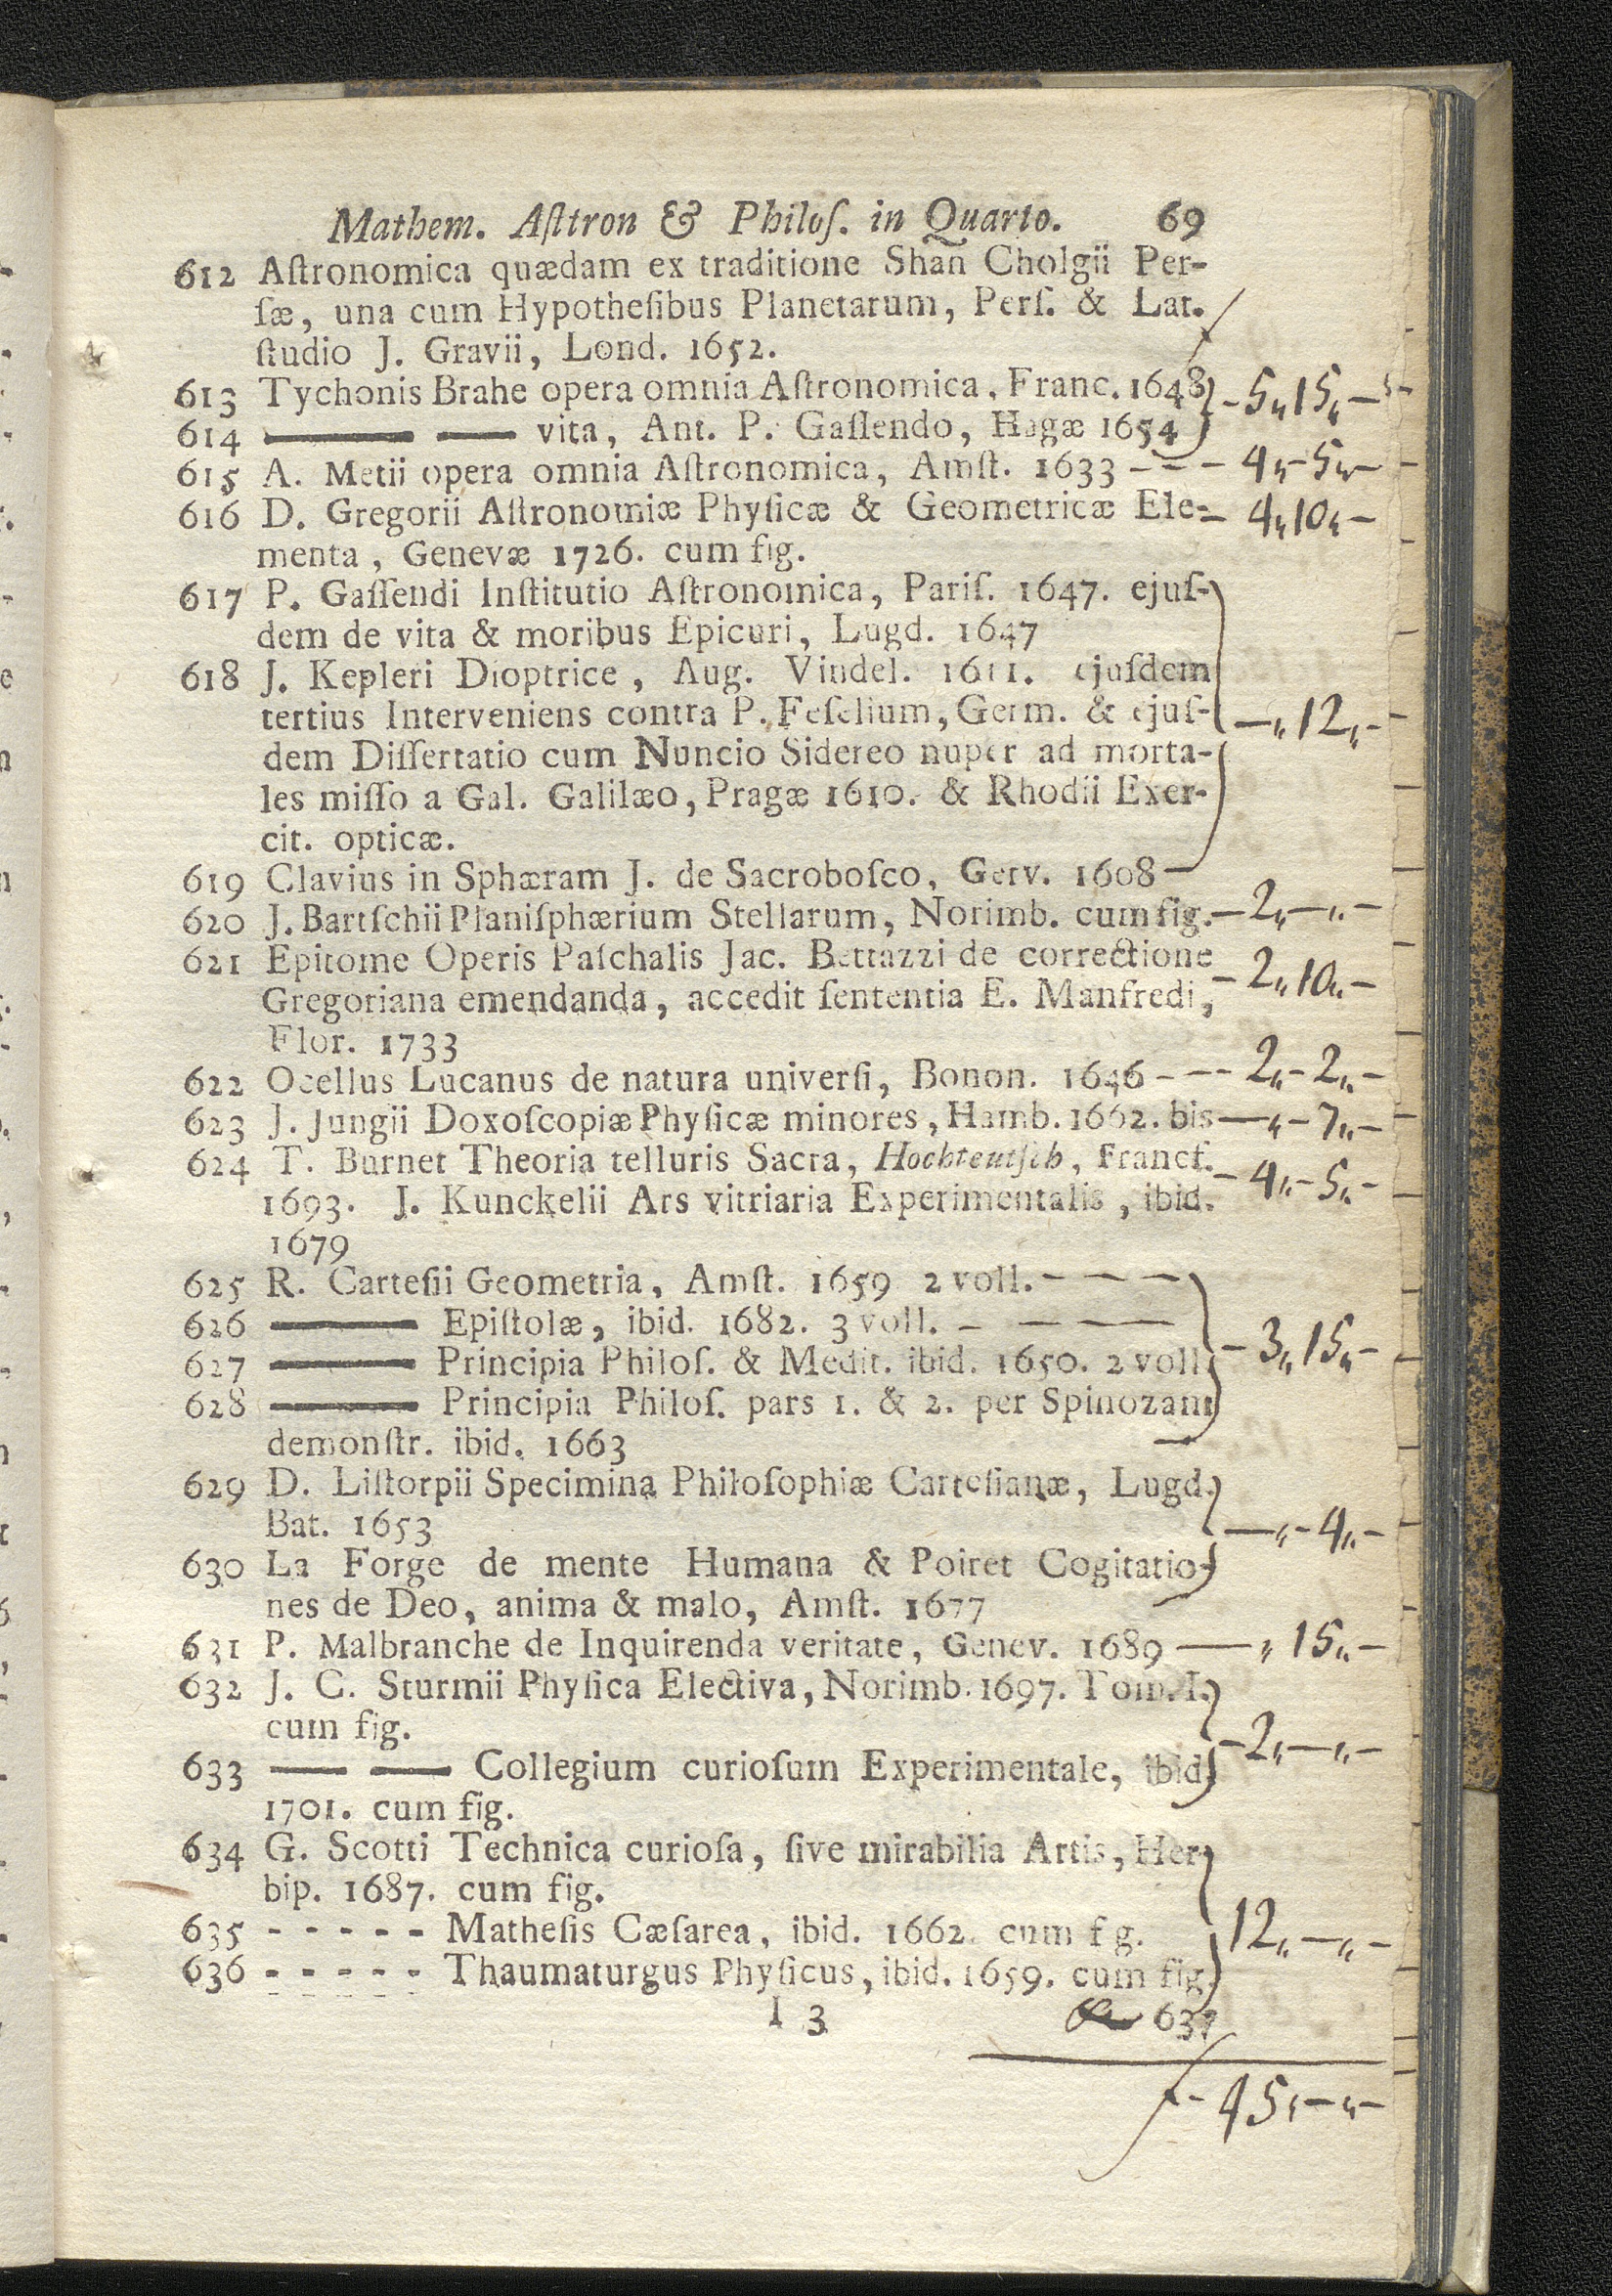 Mathem. Aſttron & Philoſ. in Quarto. 69
612 Aſtronomica quædam ex traditione Shan Cholgii Per-
ſæ, una cum Hypotheſibus Planetarum, Perſ. & Lat.
ſtudio J. Gravii, Lond. 1652.
613 Tychonis Brahe opera omnia Aſtronomica, Franc. 1648 - 5,, 15,, -
614 —— —— vita, Ant. P. Gaſſendo, Hagæ 1654
615 A. Metii opera omnia Aſtronomica, Amſt. 1633 - - - 4,, - 5,, -
616 D. Gregorii Aſtronomiæ Phyſicæ & Geometricæ Ele- - 4,, 10,, -
menta, Genevæ 1726. cum fig.
617 P. Gaſſendi Inſtitutio Aſtronomica, Pariſ. 1647. ejuſ-
dem de vita & moribus Epicuri, Lugd. 1647
618 J. Kepleri Dioptrice, Aug. Vindel. 1611. ejuſdem
tertius Interveniens contra P. Feſelium, Germ. & ejuſ- —,, 12,, -
dem Diſſertatio cum Nuncio Sidereo nuper ad morta-
les miſſo a Gal. Galilæo, Pragæ 1610. & Rhodii Exer-
cit. opticæ.
619 Clavius in Sphæram J. de Sacroboſco, Gerv. 1608 -
620 J. Bartſchii Planiſphærium Stellarum, Norimb. cum fig. - 2,, —,, -
621 Epitome Operis Paſchalis Jac. Bettazzi de correctione - 2,, 10,, -
Gregoriana emendanda, accedit ſententia E. Manfredi,
Flor. 1733
622 Ocellus Lucanus de natura univerſi, Bonon. 1646 - - - 2,, - 2,, -
623 J. Jungii Doxoſcopiæ Phyſicæ minores, Hamb. 1662. bis —,, - 7,, -
624 T. Burnet Theoria telluris Sacra, Hochteutſch, Francf. - 4,, - 5,, -
1693. J. Kunckelii Ars vitriaria Experimentalis, ibid.
1679
625 R. Carteſii Geometria, Amſt. 1659 2 voll. - - - -
626 —— Epiſtolæ, ibid. 1682. 3 voll. - — — —
627 —— Principia Philoſ. & Medit. ibid. 1650. 2 voll - 3,, 15,, -
628 —— Principia Philoſ. pars 1. & 2. per Spinozam
demonſtr. ibid. 1663
629 D. Liſtorpii Specimina Philoſophiæ Carteſianæ, Lugd.
Bat. 1653 —,, - 4,, -
630 La Forge de mente Humana & Poiret Cogitatio-
nes de Deo, anima & malo, Amſt. 1677
631 P. Malbranche de Inquirenda veritate, Genev. 1689 —,, 15,, -
632 J. C. Sturmii Phyſica Electiva, Norimb. 1697. Tom. I.
cum fig. - 2,, —,, -
633 —— —— Collegium curioſum Experimentale, ibid
1701. cum fig.
634 G. Scotti Technica curioſa, ſive mirabilia Artis, Her-
bip. 1687. cum fig.
635 - - - - - Matheſis Cæſarea, ibid. 1662. cum f g. 12,, —,, -
636 - - - - - Thaumaturgus Phyſicus, ibid. 1659. cum fig.
I 3 637
ƒ - 45,, —,, -